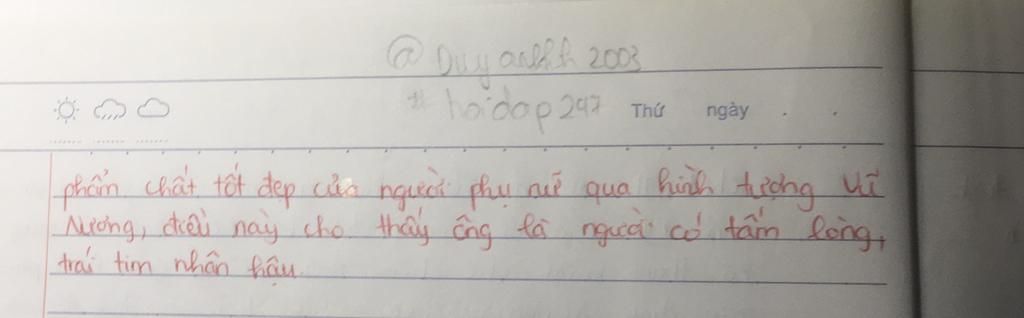 @ Duyanhh2003
# hoidap247 Thứ ngày
phẩm chất tốt đẹp của người phụ nữ qua hình tượng Vũ
Nương, điều này cho thấy ông là người có tấm lòng,
trái tim nhân hậu.